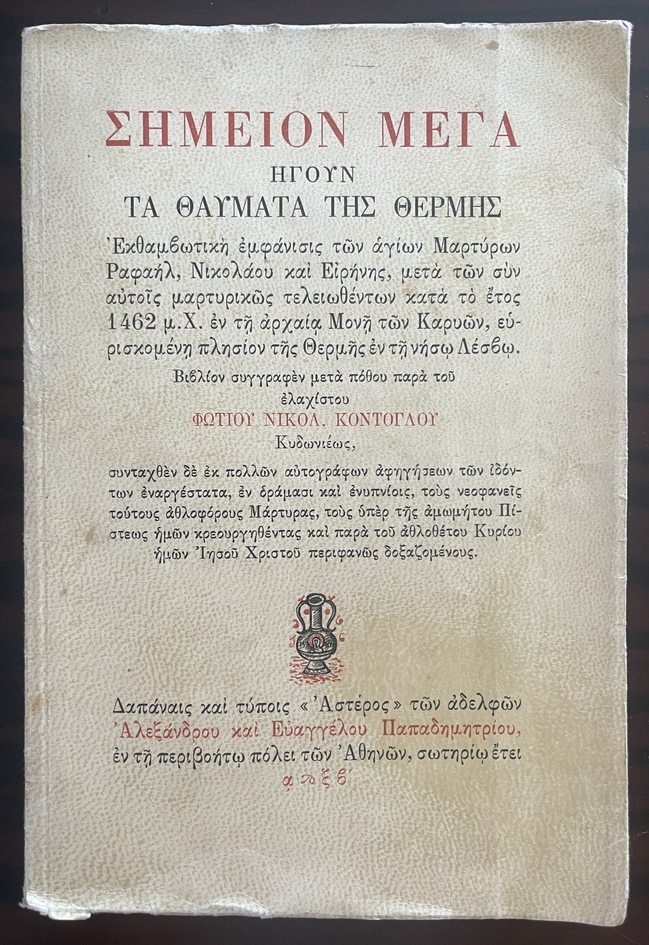 ΣΗΜΕΙΟΝ ΜΕΓΑ
ΗΓΟΥΝ
ΤΑ ΘΑΥΜΑΤΑ ΤΗΣ ΘΕΡΜΗΣ
Ἐκθαμβωτικὴ ἐμφάνισις τῶν ἁγίων Μαρτύρων
Ραφαήλ, Νικολάου καὶ Εἰρήνης, μετὰ τῶν σὺν
αὐτοῖς μαρτυρικῶς τελειωθέντων κατὰ τὸ ἔτος
1462 μ.Χ. ἐν τῇ ἀρχαίᾳ Μονῇ τῶν Καρυῶν, εὑ-
ρισκομένῃ πλησίον τῆς Θερμῆς ἐν τῇ νήσῳ Λέσβῳ.
Βιβλίον συγγραφὲν μετὰ πόθου παρὰ τοῦ
ἐλαχίστου
ΦΩΤΙΟΥ ΝΙΚΟΛ. ΚΟΝΤΟΓΛΟΥ
Κυδωνιέως,
συνταχθὲν δὲ ἐκ πολλῶν αὐτογράφων ἀφηγήσεων τῶν ἰδόν-
των ἐναργέστατα, ἐν ὁράμασι καὶ ἐνυπνίοις, τοὺς νεοφανεῖς
τούτους ἀθλοφόρους Μάρτυρας, τοὺς ὑπὲρ τῆς ἀμωμήτου Πί-
στεως ἡμῶν κρεουργηθέντας καὶ παρὰ τοῦ ἀθλοθέτου Κυρίου
ἡμῶν Ἰησοῦ Χριστοῦ περιφανῶς δοξαζομένους.
Δαπάναις καὶ τύποις «Ἀστέρος» τῶν ἀδελφῶν
Ἀλεξάνδρου καὶ Εὐαγγέλου Παπαδημητρίου,
ἐν τῇ περιβοήτῳ πόλει τῶν Ἀθηνῶν, σωτηρίῳ ἔτει
͵αϡξβʹ